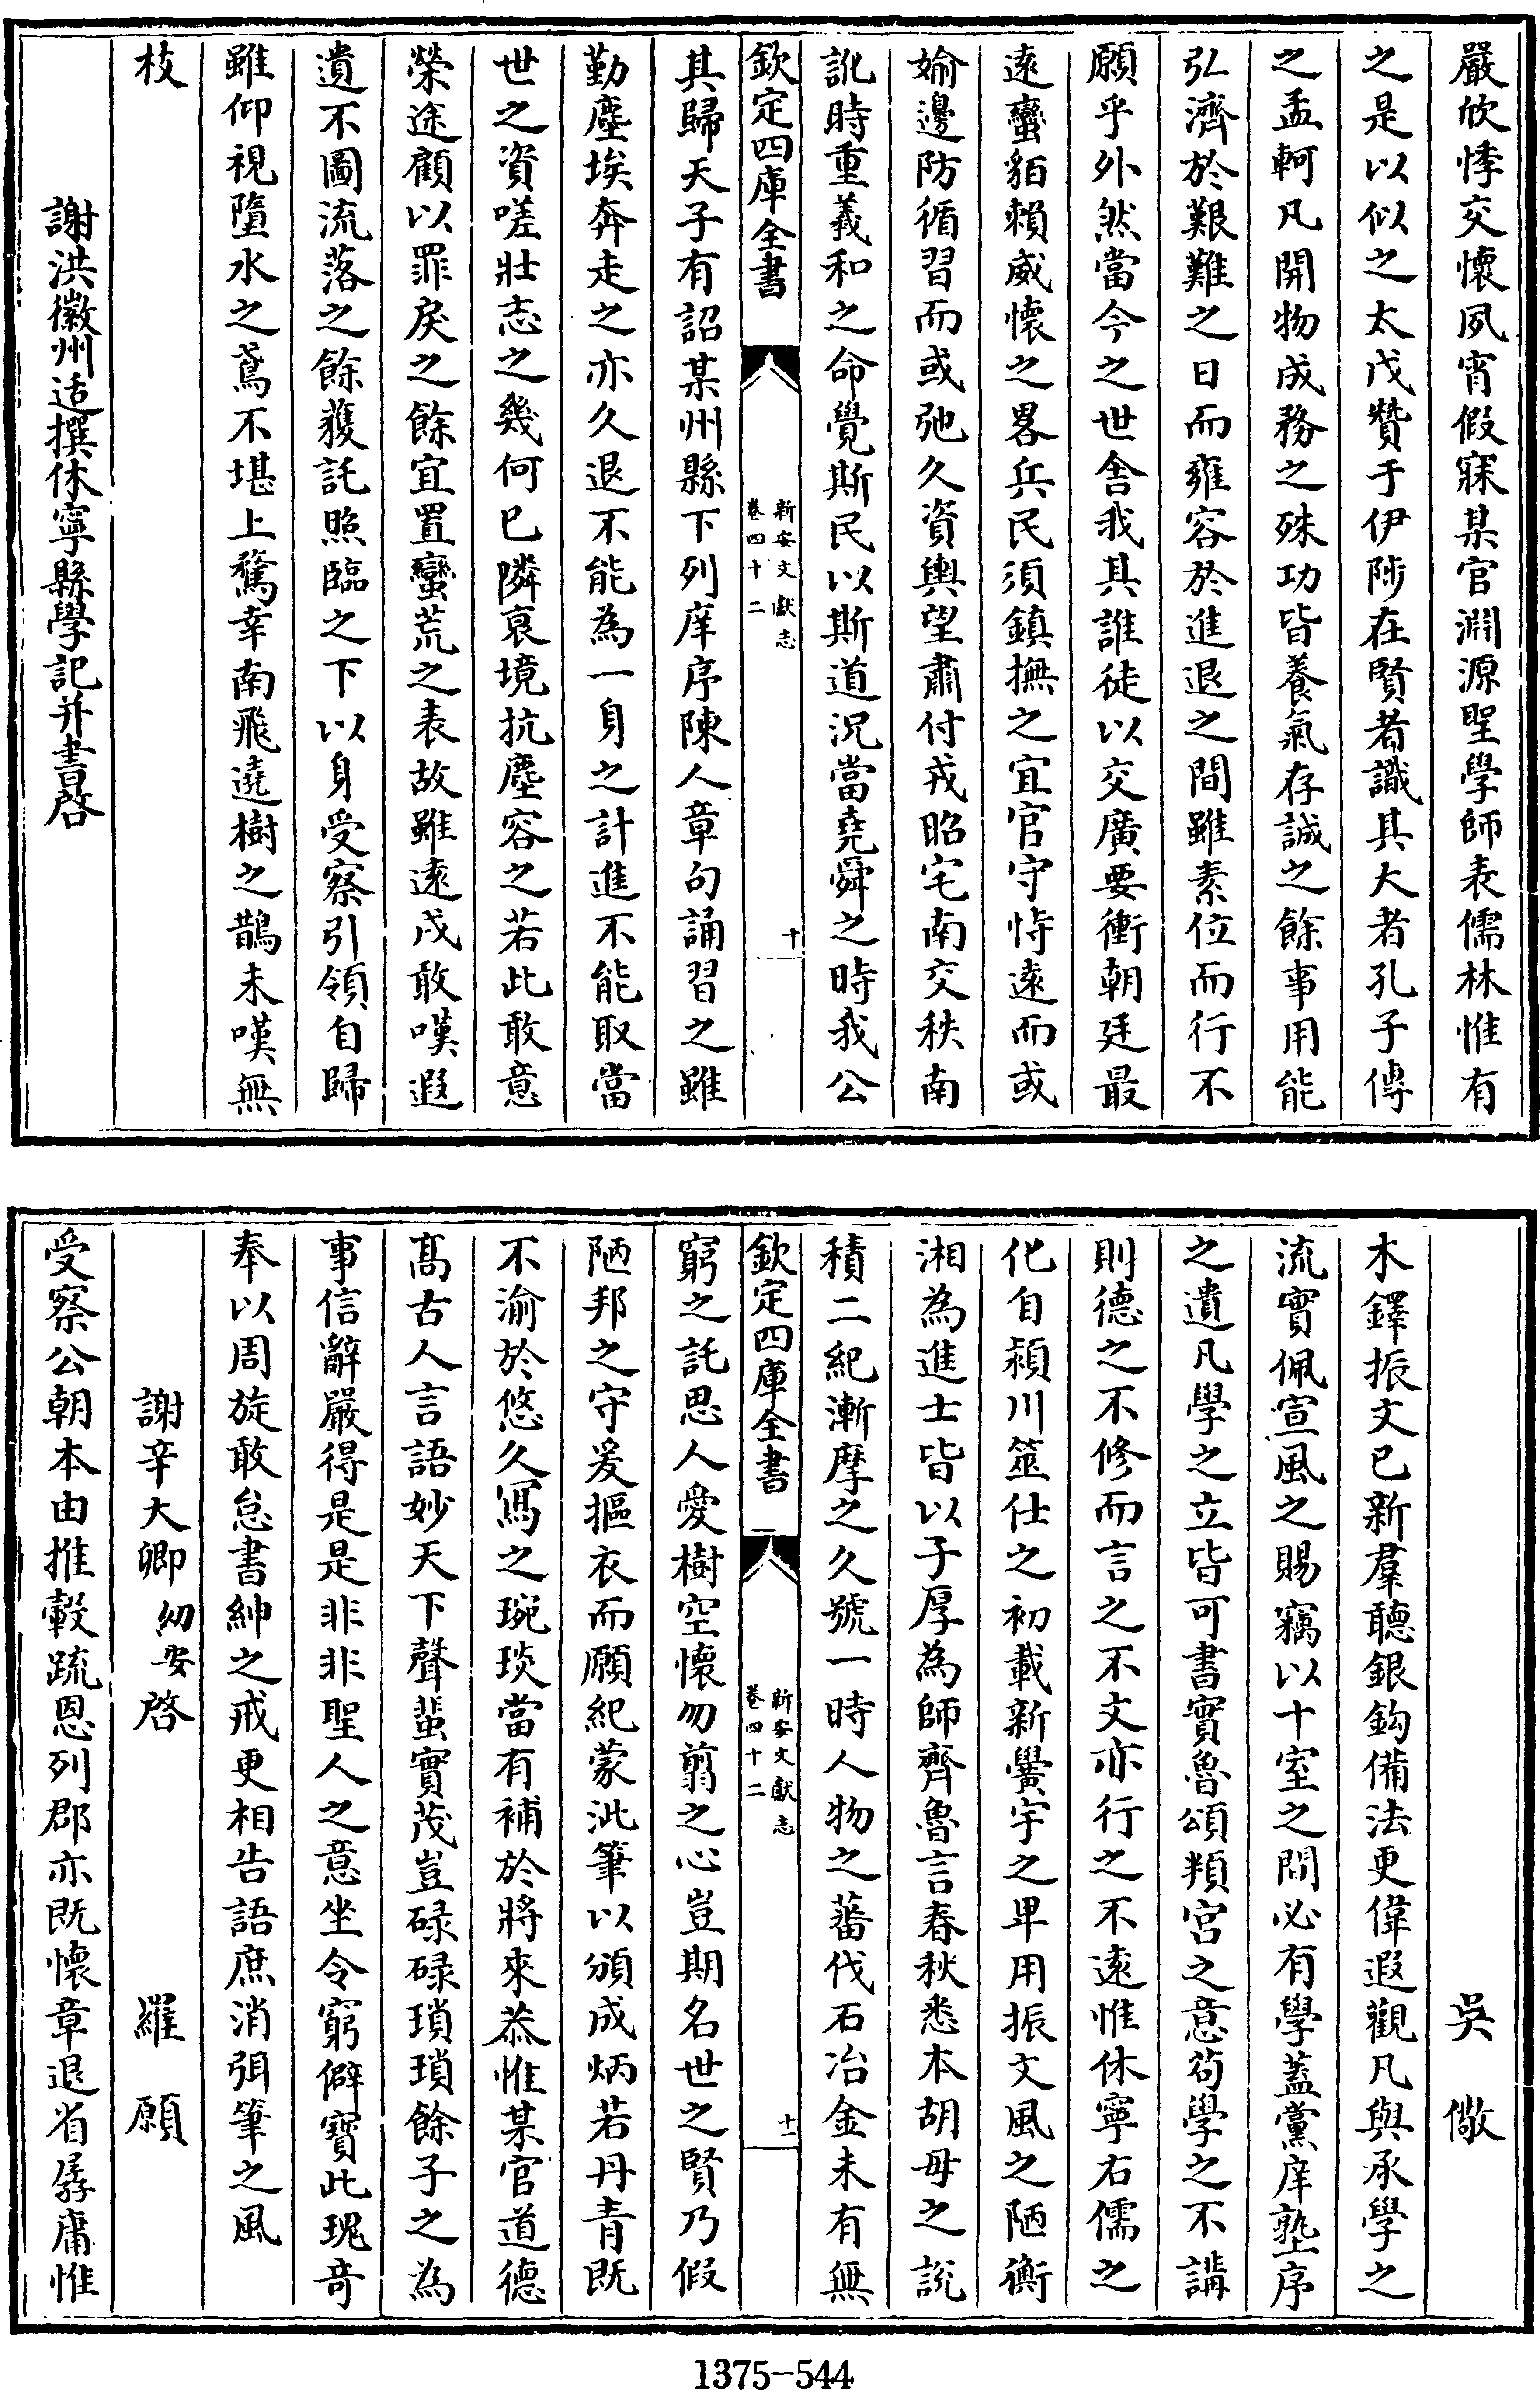 嚴欣悸交懷夙宵假寐某官淵源聖學師表儒林惟有
之是以似之太戊贊于伊陟在賢者識其大者孔子傳
之孟軻凡開物成務之殊功皆養氣存誠之餘事用能
弘濟於艱難之日而雍容於進退之間雖素位而行不
願乎外然當今之世舍我其誰徒以交廣要衝朝廷最
遠蠻貊賴威懷之畧兵民須鎮撫之宜官守恃遠而或
婾邊防循習而或弛久資輿望肅付戎昭宅南交秩南
訛時重義和之命覺斯民以斯道況當堯舜之時我公
欽定四庫全書
新安文獻志
卷四十二
十
其歸天子有詔某州縣下列庠序陳人章句誦習之雖
勤塵埃奔走之亦久退不能為一身之計進不能取當
世之資嗟壯志之幾何已隣衰境抗塵容之若此敢意
榮途顧以罪戾之餘宜置蠻荒之表故雖遠戍敢嘆遐
遺不圖流落之餘獲託照臨之下以身受察引領自歸
雖仰視墮水之鳶不堪上騖幸南飛遶樹之鵲未嘆無
枝
謝洪徽州适撰休寧縣學記并書啓
吳儆
木鐸振文已新羣聽銀鈎備法更偉遐觀凡與承學之
流實佩宣風之賜竊以十室之間必有學蓋黨庠塾序
之遺凡學之立皆可書實魯頌頖宮之意茍學之不講
則德之不修而言之不文亦行之不遠惟休寧右儒之
化自潁川筮仕之初載新黌宇之卑用振文風之陋衡
湘為進士皆以子厚為師齊魯言春秋悉本胡毋之說
積二紀漸摩之久號一時人物之蕃伐石冶金未有無
欽定四庫全書
新安文獻志
卷四十二
十一
窮之託思人愛樹空懷勿翦之心豈期名世之賢乃假
陋邦之守爰摳衣而願紀蒙泚筆以頒成炳若丹青既
不渝於悠久寫之琬琰當有補於將來恭惟某官道德
髙古人言語妙天下聲蜚實茂豈碌碌瑣瑣餘子之為
事信辭嚴得是是非非聖人之意坐令窮僻寶此瑰竒
奉以周旋敢怠書紳之戒更相告語庶消弭筆之風
謝辛大卿幼安啓
羅願
受察公朝本由推轂疏恩列郡亦既懷章退省孱庸惟
1375-544